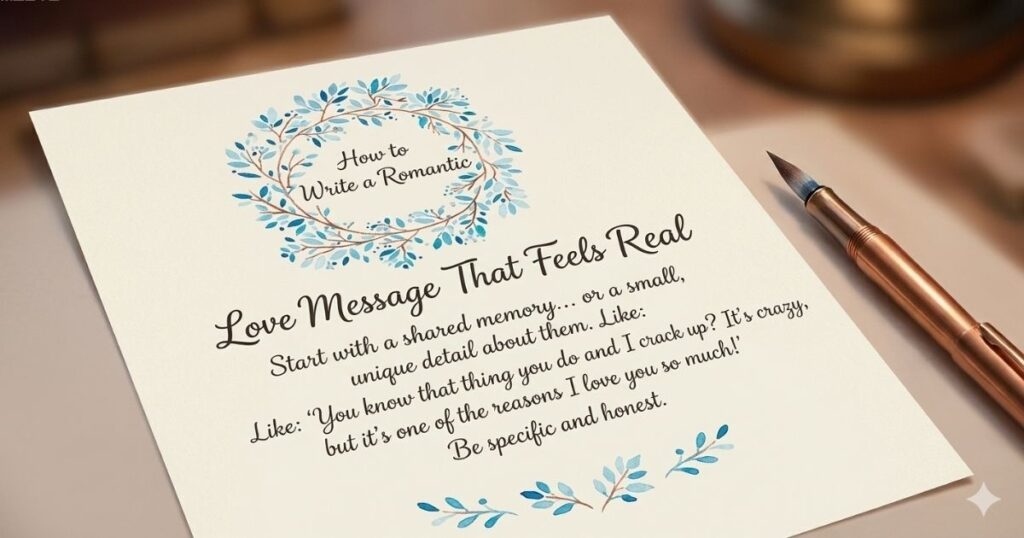 How to
Write a Romantic
Love Message That Feels Real
Start with a shared memory... or a small,
unique detail about them. Like:
Like: 'You know that thing you do and I crack up? It's crazy,
but it's one of the reasons I love you so much!'
Be specific and honest.